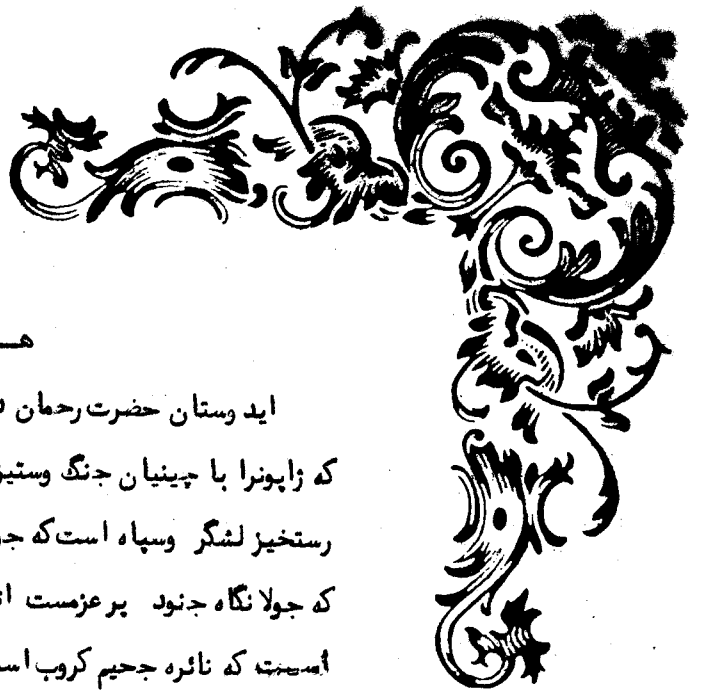 هـ
ایدوستان حضرت رحمان
که ژاپونرا با چینیان جنگ وستیز
رستخیز لشگر وسپاه است که
که جولانگاه جنود پر عزمست
است که نائره جحیم کروب